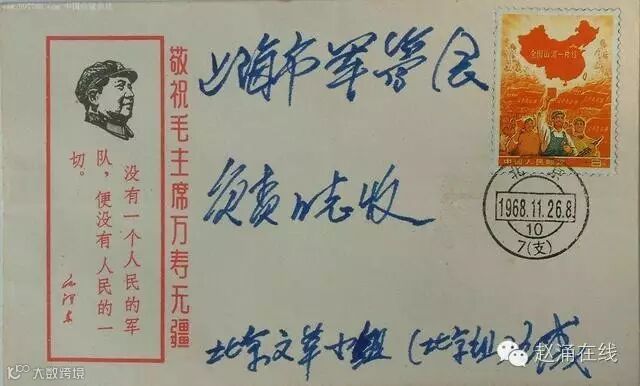 敬祝毛主席万寿无疆
没有一个人民的军
队，便没有人民的一
切。
毛泽东
上海市军管会
负责同志收
北京文革小组（北京组
全国山河一片红
中国人民邮政
8
北京
1968.11.26.8
10
7(支)
赵涌在线
大数跨境